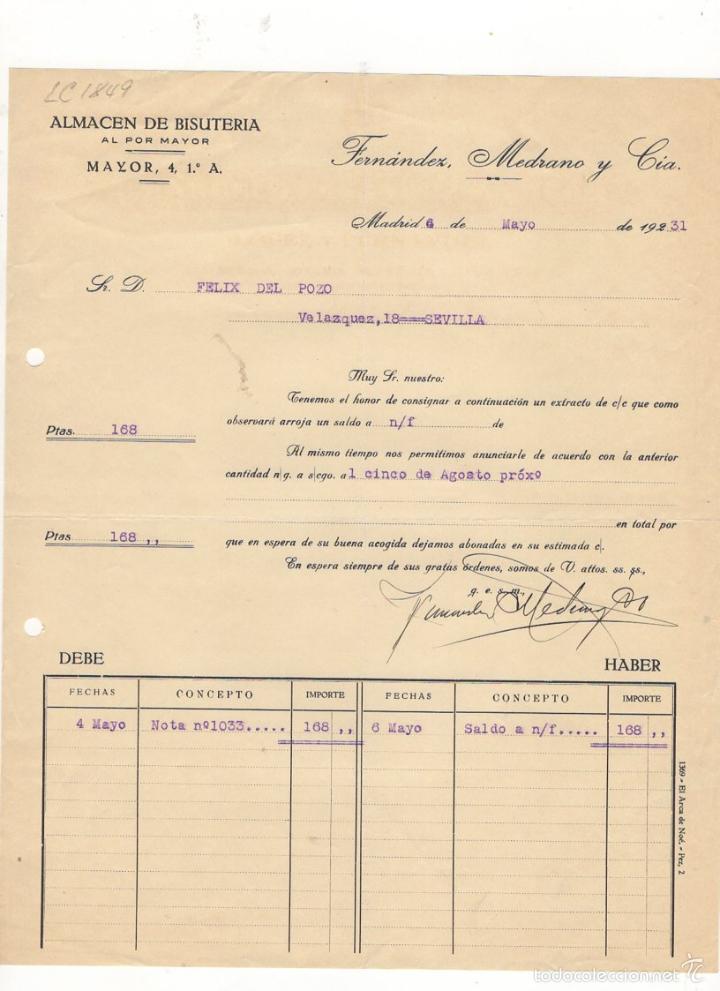 LC 1849
ALMACEN DE BISUTERIA
AL POR MAYOR
MAYOR, 4, 1.º A.
Fernández, Medrano y Cía.
Madrid 6 de Mayo de 19231
Sr. D. FELIX DEL POZO
Velazquez,18===SEVILLA
Muy Sr. nuestro:
Tenemos el honor de consignar a continuación un extracto de c/c que como
observará arroja un saldo a n/f de
Ptas. 168
Al mismo tiempo nos permitimos anunciarle de acuerdo con la anterior
cantidad n/g. a s/cgo. a l cinco de Agosto próxº
en total por
Ptas. 168 ,,
que en espera de su buena acogida dejamos abonadas en su estimada c/.
En espera siempre de sus gratas órdenes, somos de V. attos. ss. ss.,
q. e. s. m.,
DEBE HABER
FECHAS CONCEPTO IMPORTE FECHAS CONCEPTO IMPORTE
4 Mayo Nota nº1033..... 168 ,, 6 Mayo Saldo a n/f..... 168 ,,
1369 - El Arca de Noé. - Pez, 2
todocoleccion.net